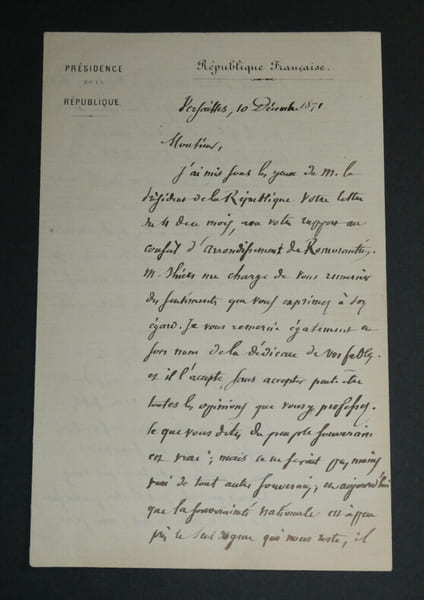 PRÉSIDENCE
DE LA
RÉPUBLIQUE
République Française.
Versailles, 10 Décembre 1871
Monsieur,
J'ai mis sous les yeux de M. le
Président de la République votre lettre
du 4 de ce mois, avec votre rapport au
conseil d'arrondissement de Romorantin.
M. Thiers me charge de vous remercier
des sentiments que vous exprimez à son
égard. Je vous remercie également en
son nom de la dédicace de vos fables,
et il l'accepte, sans accepter peut-être
toutes les opinions que vous y professez.
Ce que vous dites du peuple souverain
est vrai ; mais ce ne serait pas moins
vrai de tout autre souverain ; et aujourd'hui
que la souveraineté nationale est à peu
près le seul qui nous reste, il